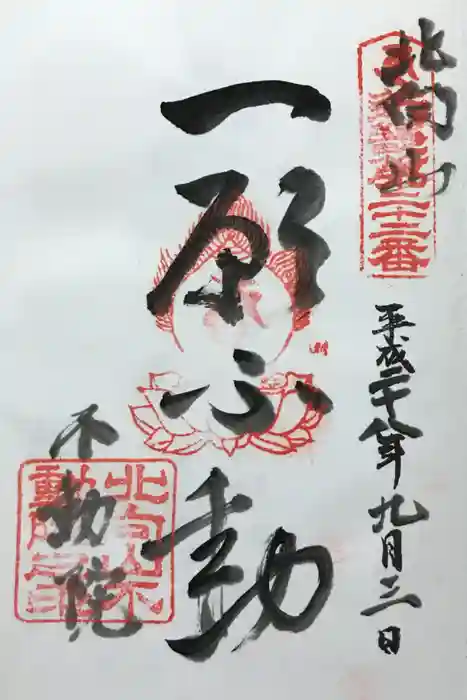 北向山
二十二番
平成二十八年九月三日
一願不動
不動院
北向山不
動院之印